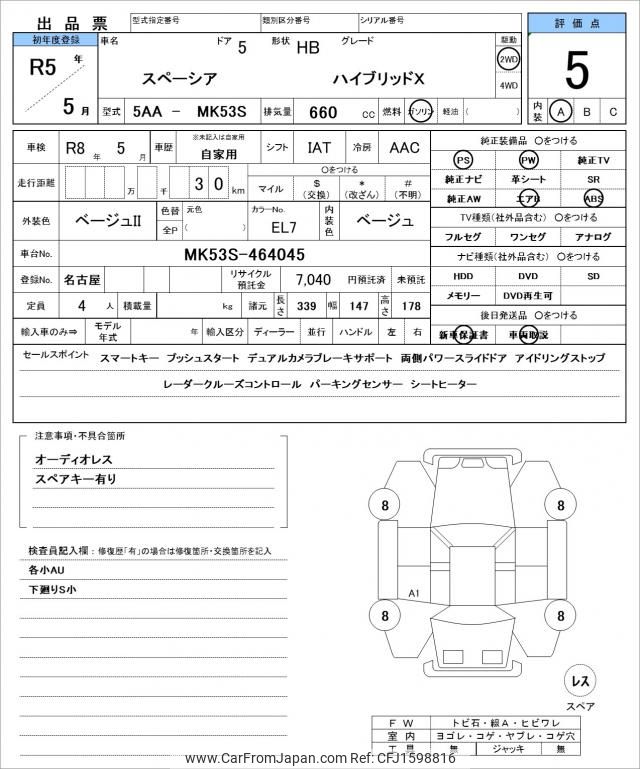 出品票 型式指定番号 類別区分番号 シリアル番号 評価点
初年度登録 車名 ドア 5 形状 HB グレード 駆動
R5 年 スペーシア ハイブリッドX 2WD 5
4WD
5 月 型式 5AA - MK53S 排気量 660 CC 燃料 ガソリン 軽油 ( ) 内装 A B C
車検 R8 年 5 月 車歴 ※未記入は自家用 自家用 シフト IAT 冷房 AAC 純正装備品 ○をつける
PS PW 純正TV
走行距離 万 千 3 0 km ○をつける
マイル $ (交換) * (改ざん) # (不明)
純正ナビ 革シート SR
純正AW エアB ABS
外装色 ベージュII 色替 元色 カラーNo. 内装色 ベージュ
全P ( ) EL7
TV種類(社外品含む) ○をつける
フルセグ ワンセグ アナログ
車台No. MK53S-464045 ナビ種類(社外品含む) ○をつける
登録No. 名古屋 リサイクル預託金 7,040 円預託済 未預託 HDD DVD SD
定員 4 人 積載量 kg 諸元 長さ 339 幅 147 高さ 178 メモリー DVD再生可
後日発送品 ○をつける
輸入車のみ⇒ モデル年式 年 輸入区分 ディーラー 並行 ハンドル 左 右 新車保証書 車両取説
セールスポイント スマートキー プッシュスタート デュアルカメラブレーキサポート 両側パワースライドドア アイドリングストップ
レーダークルーズコントロール パーキングセンサー シートヒーター
注意事項・不具合箇所
オーディオレス
スペアキー有り
8 8
検査員記入欄:修復歴「有」の場合は修復箇所・交換箇所を記入
各小AU
下廻りS小
A1
8 8
レス
スペア
FW トビ石・線A・ヒビワレ
室内 ヨゴレ・コゲ・ヤブレ・コゲ穴
工具 無 ジャッキ 無
www.CarFromJapan.com Ref: CFJ1598816